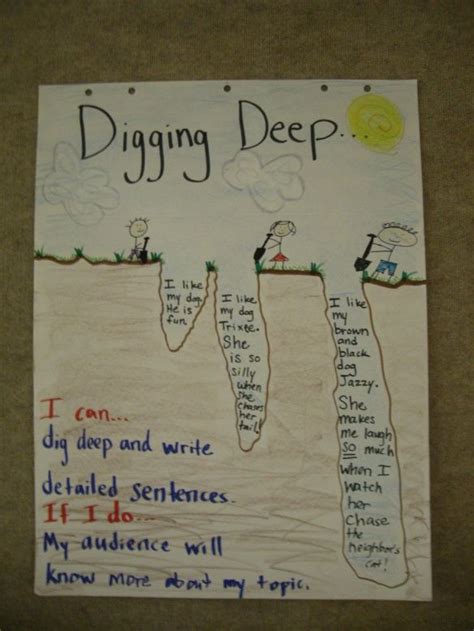 Digging Deep...
I like
my dog.
He is
fun.
I like
my dog
Trixie.
She
is so
silly
when
she
chases
her
tail!
I like
my
brown
and
black
dog
Jazzy.
She
makes
me laugh
so much
when I
watch
her
chase
the
neighbor's
cat!
I can...
dig deep and write
detailed sentences.
If I do...
My audience will
know more about my topic.